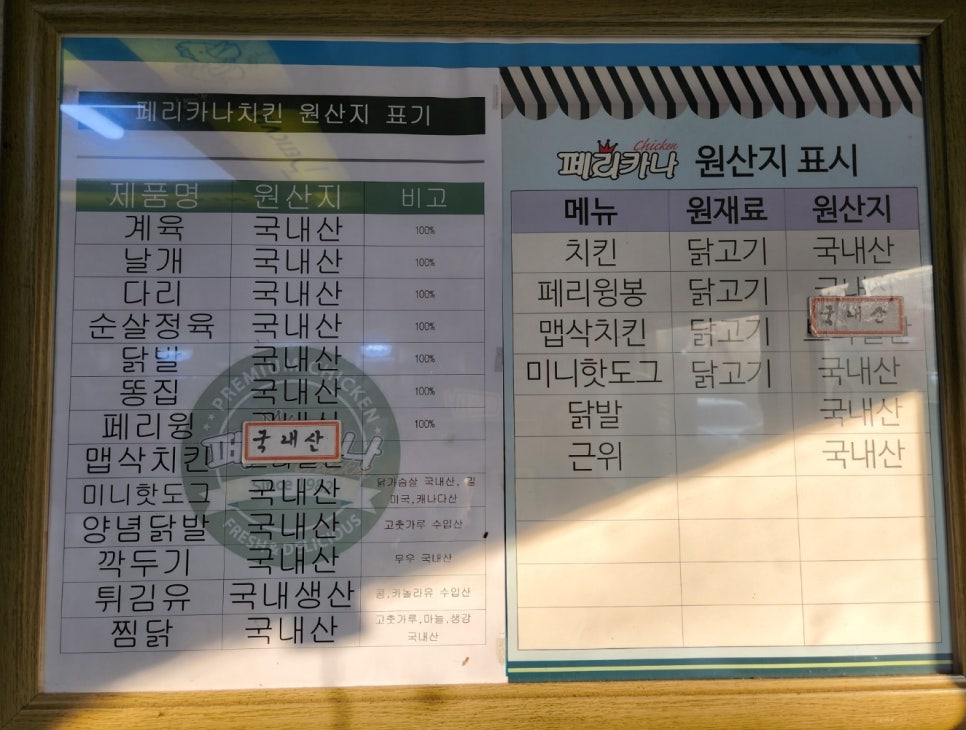 페리카나치킨 원산지 표기
제품명 원산지 비고
계육 국내산 100%
날개 국내산 100%
다리 국내산 100%
순살정육 국내산 100%
닭발 국내산 100%
똥집 국내산 100%
페리윙 100%
맵삭치킨 국내산
미니핫도그 국내산 닭가슴살 국내산, 밀
미국,캐나다산
양념닭발 국내산 고춧가루 수입산
깍두기 국내산 무우 국내산
튀김유 국내생산 콩,카놀라유 수입산
찜닭 국내산 고춧가루,마늘,생강
국내산
PREMIUM CHICKEN
Since 1982
FRESH & DELICIOUS
Chicken
페리카나 원산지 표시
메뉴 원재료 원산지
치킨 닭고기 국내산
페리윙봉 닭고기 국내산
맵삭치킨 닭고기 국내산
미니핫도그 닭고기 국내산
닭발 국내산
근위 국내산